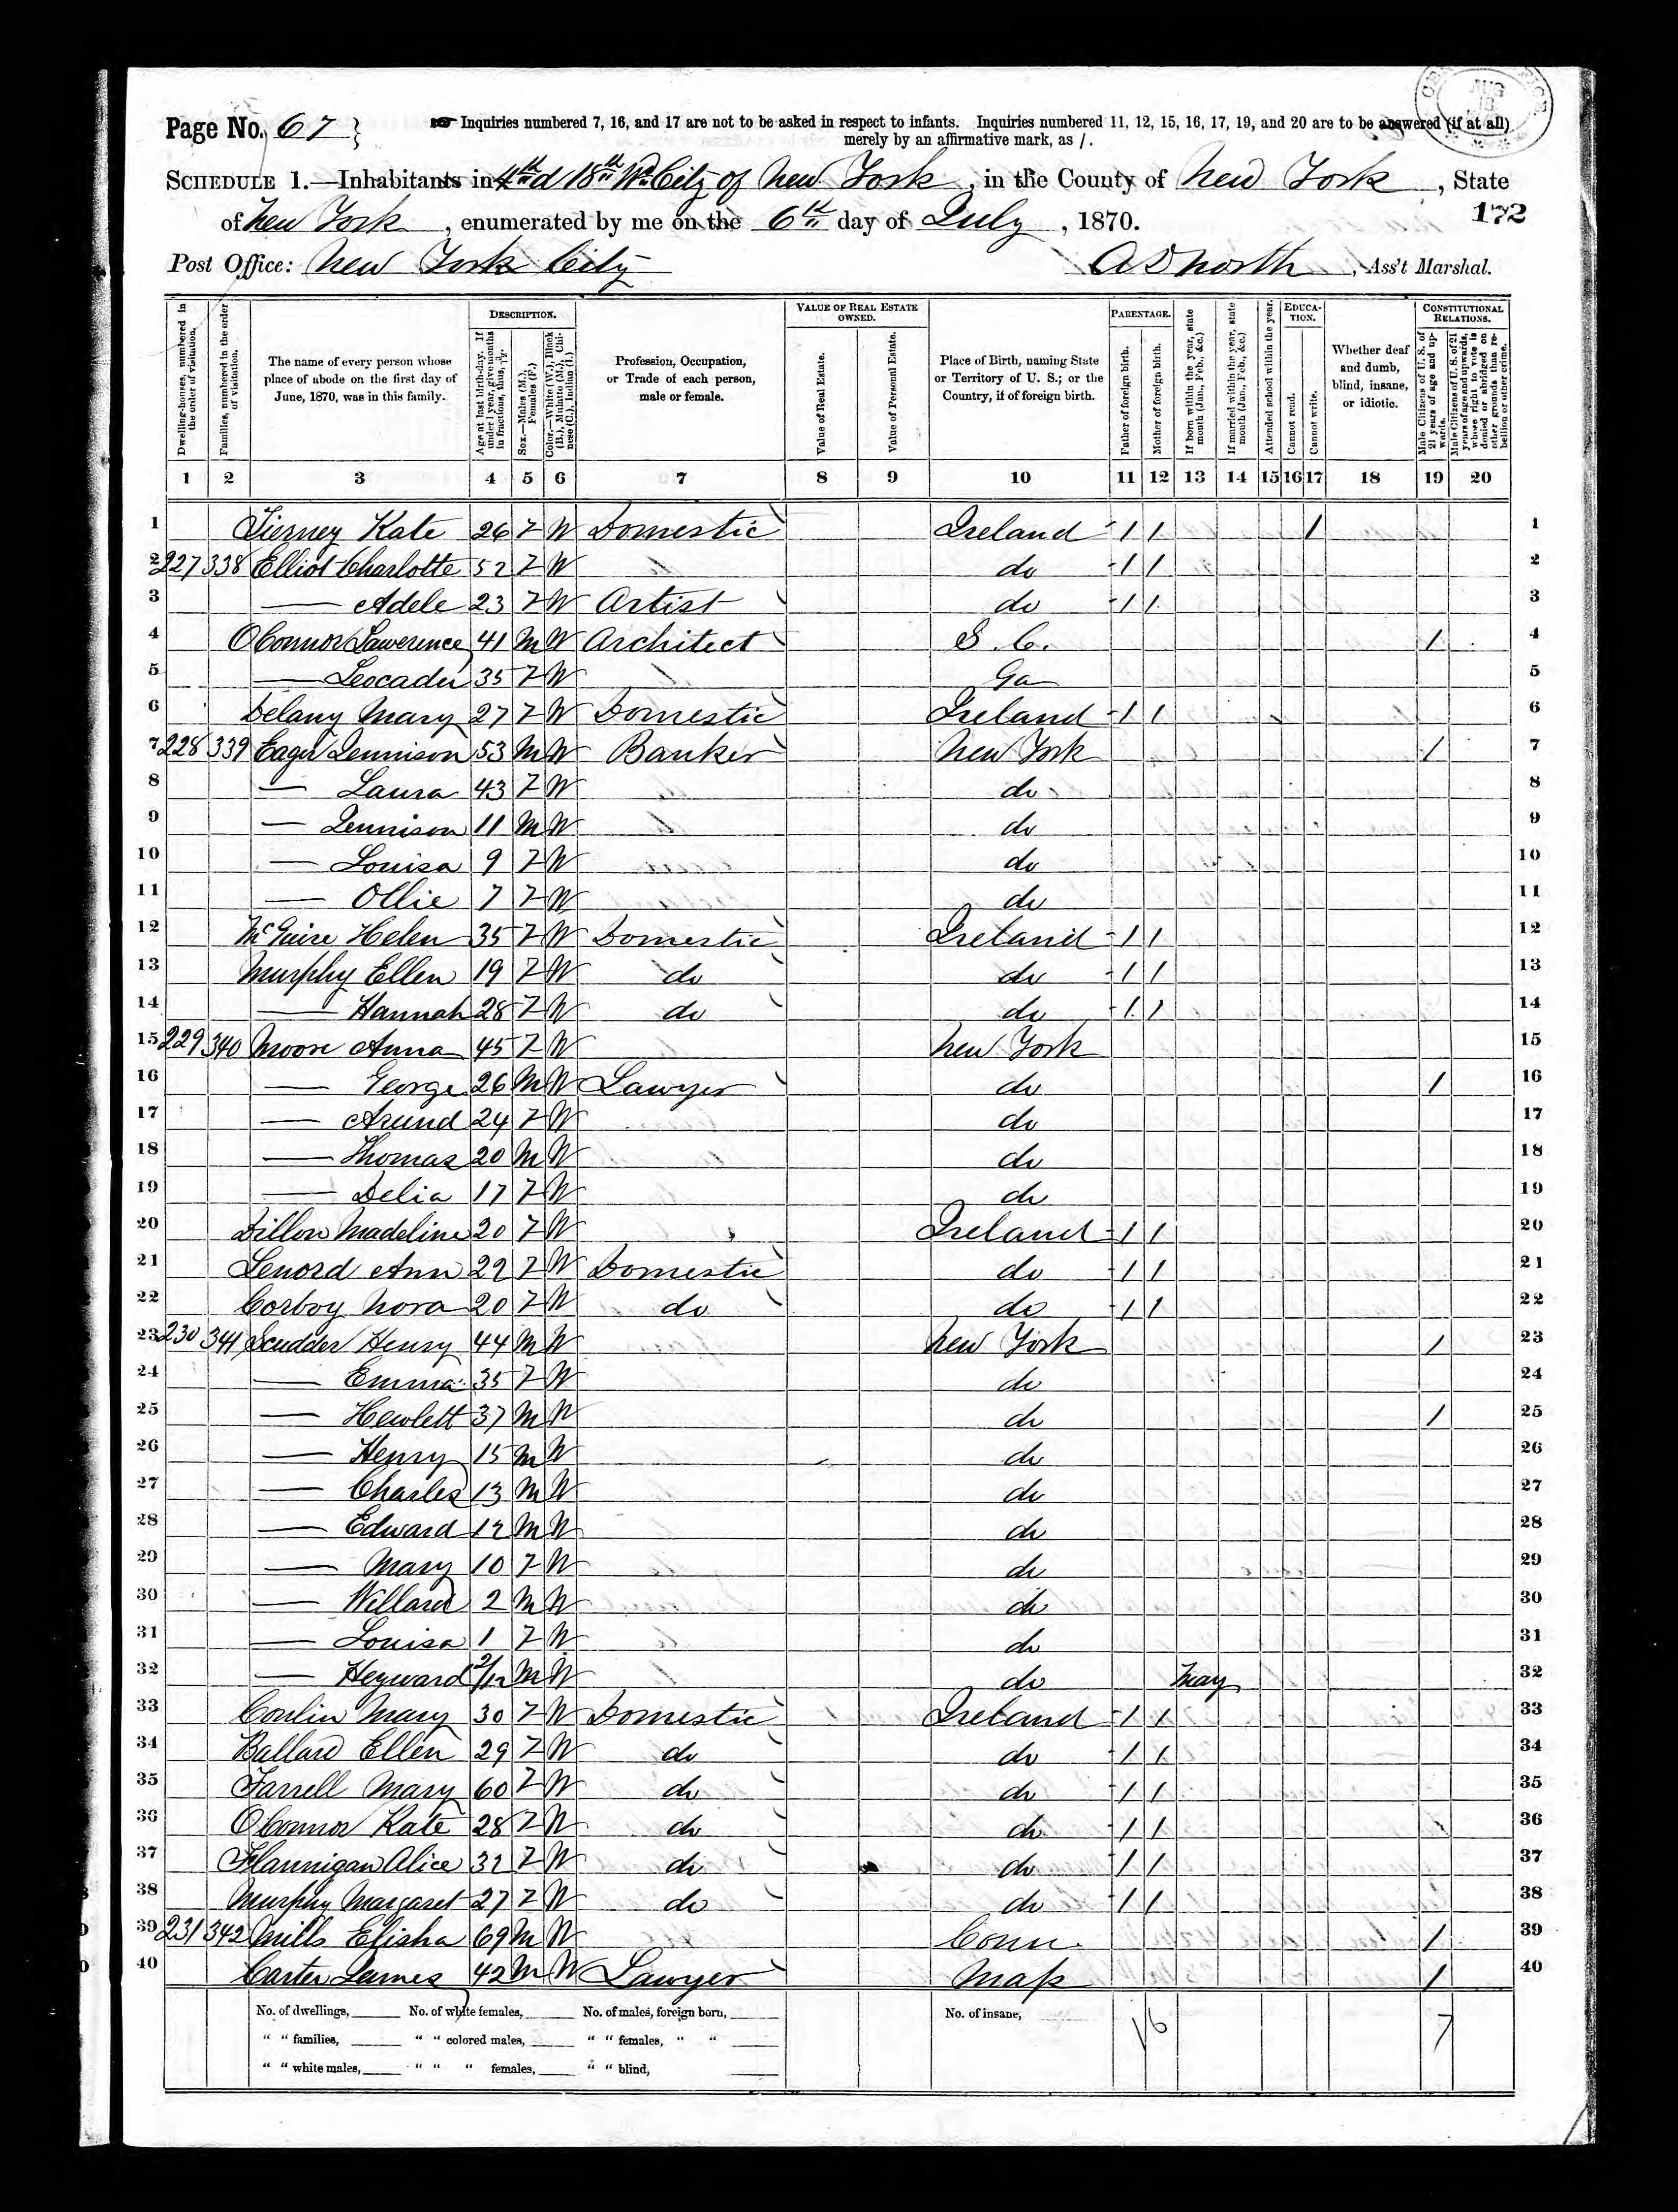 Page No. 67 } ☞ Inquiries numbered 7, 16, and 17 are not to be asked in respect to infants. Inquiries numbered 11, 12, 15, 16, 17, 19, and 20 are to be answered (if at all)
merely by an affirmative mark, as /.
SCHEDULE 1.—Inhabitants in 4th d 18th Wd City of New York, in the County of New York, State
of New York, enumerated by me on the 6th day of July, 1870.
172
Post Office: New York City
A D North, Ass't Marshal.
Dwelling-houses, numbered in the order of visitation.
Families, numbered in the order of visitation.
The name of every person whose place of abode on the first day of June, 1870, was in this family.
DESCRIPTION.
Age at last birth-day. If under 1 year, give months in fractions, thus,
Sex.—Males (M.), Females (F.)
Color.—White (W.), Black (B.), Mulatto (M.), Chinese (C.), Indian (I.)
Profession, Occupation, or Trade of each person, male or female.
VALUE OF REAL ESTATE OWNED.
Value of Real Estate.
Value of Personal Estate.
Place of Birth, naming State or Territory of U. S.; or the Country, if of foreign birth.
PARENTAGE.
Father of foreign birth.
Mother of foreign birth.
If born within the year, state month (Jan., Feb., &c.)
If married within the year, state month (Jan., Feb., &c.)
Attended school within the year.
EDUCATION.
Cannot read.
Cannot write.
Whether deaf and dumb, blind, insane, or idiotic.
CONSTITUTIONAL RELATIONS.
Male Citizens of U. S. of 21 years of age and upwards.
Male Citizens of U. S. of 21 years of age and upwards, whose right to vote is denied or abridged on other grounds than rebellion or other crime.
1 2 3 4 5 6 7 8 9 10 11 12 13 14 15 16 17 18 19 20
1 Tierney Kate 26 F W Domestic Ireland / / / 1
2 227 338 Elliot Charlotte 52 F W do / / 2
3 — Adele 23 F W Artist do / / 3
4 OConnor Lawerence 41 M W Architect S. C. / 4
5 — Leocadei 35 F W Ga 5
6 Delany Mary 27 F W Domestic Ireland / / 6
7 228 339 Eager Jennison 53 M W Banker New York / 7
8 — Laura 43 F W do 8
9 — Jennison 11 M W do 9
10 — Louisa 9 F W do 10
11 — Ollie 7 F W do 11
12 McGuire Helen 35 F W Domestic Ireland / / 12
13 Murphy Ellen 19 F W do do / / 13
14 — Hannah 28 F W do do / / 14
15 229 340 Moore Anna 45 F W New York 15
16 — George 26 M W Lawyer do / 16
17 — Arund 24 F W do 17
18 — Thomas 20 M W do 18
19 — Delia 17 F W do 19
20 Dillon Madeline 20 F W Ireland / / 20
21 Lenord Ann 22 F W Domestic do / / 21
22 Corboy Nora 20 F W do do / / 22
23 230 341 Scudder Henry 44 M W New York / 23
24 — Emma 35 F W do 24
25 — Hewlett 37 M W do / 25
26 — Henry 15 M W do 26
27 — Charles 13 M W do 27
28 — Edward 12 M W do 28
29 — Mary 10 F W do 29
30 — Willard 2 M W do 30
31 — Louisa 1 F W do 31
32 — Heyward 2/12 M W do May 32
33 Conlin Mary 30 F W Domestic Ireland / / 33
34 Ballard Ellen 29 F W do do / / 34
35 Farrell Mary 60 F W do do / / 35
36 OConnor Kate 28 F W do do / / 36
37 Flannigan Alice 32 F W do do / / 37
38 Murphy Margaret 27 F W do do / / 38
39 231 342 Mills Elisha 69 M W Conn. / 39
40 Carter James 42 M W Lawyer Mass / 40
No. of dwellings, No. of white females, No. of males, foreign born, No. of insane, 16 7
" " families, " " colored males, " " females, " "
" " white males, " " " females, " " blind,